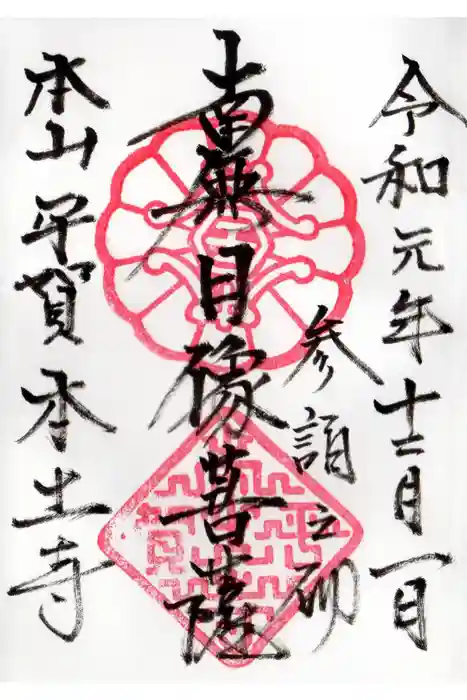 令和元年十二月一日
参詣之砌
南無日像菩薩
本山平賀本土寺